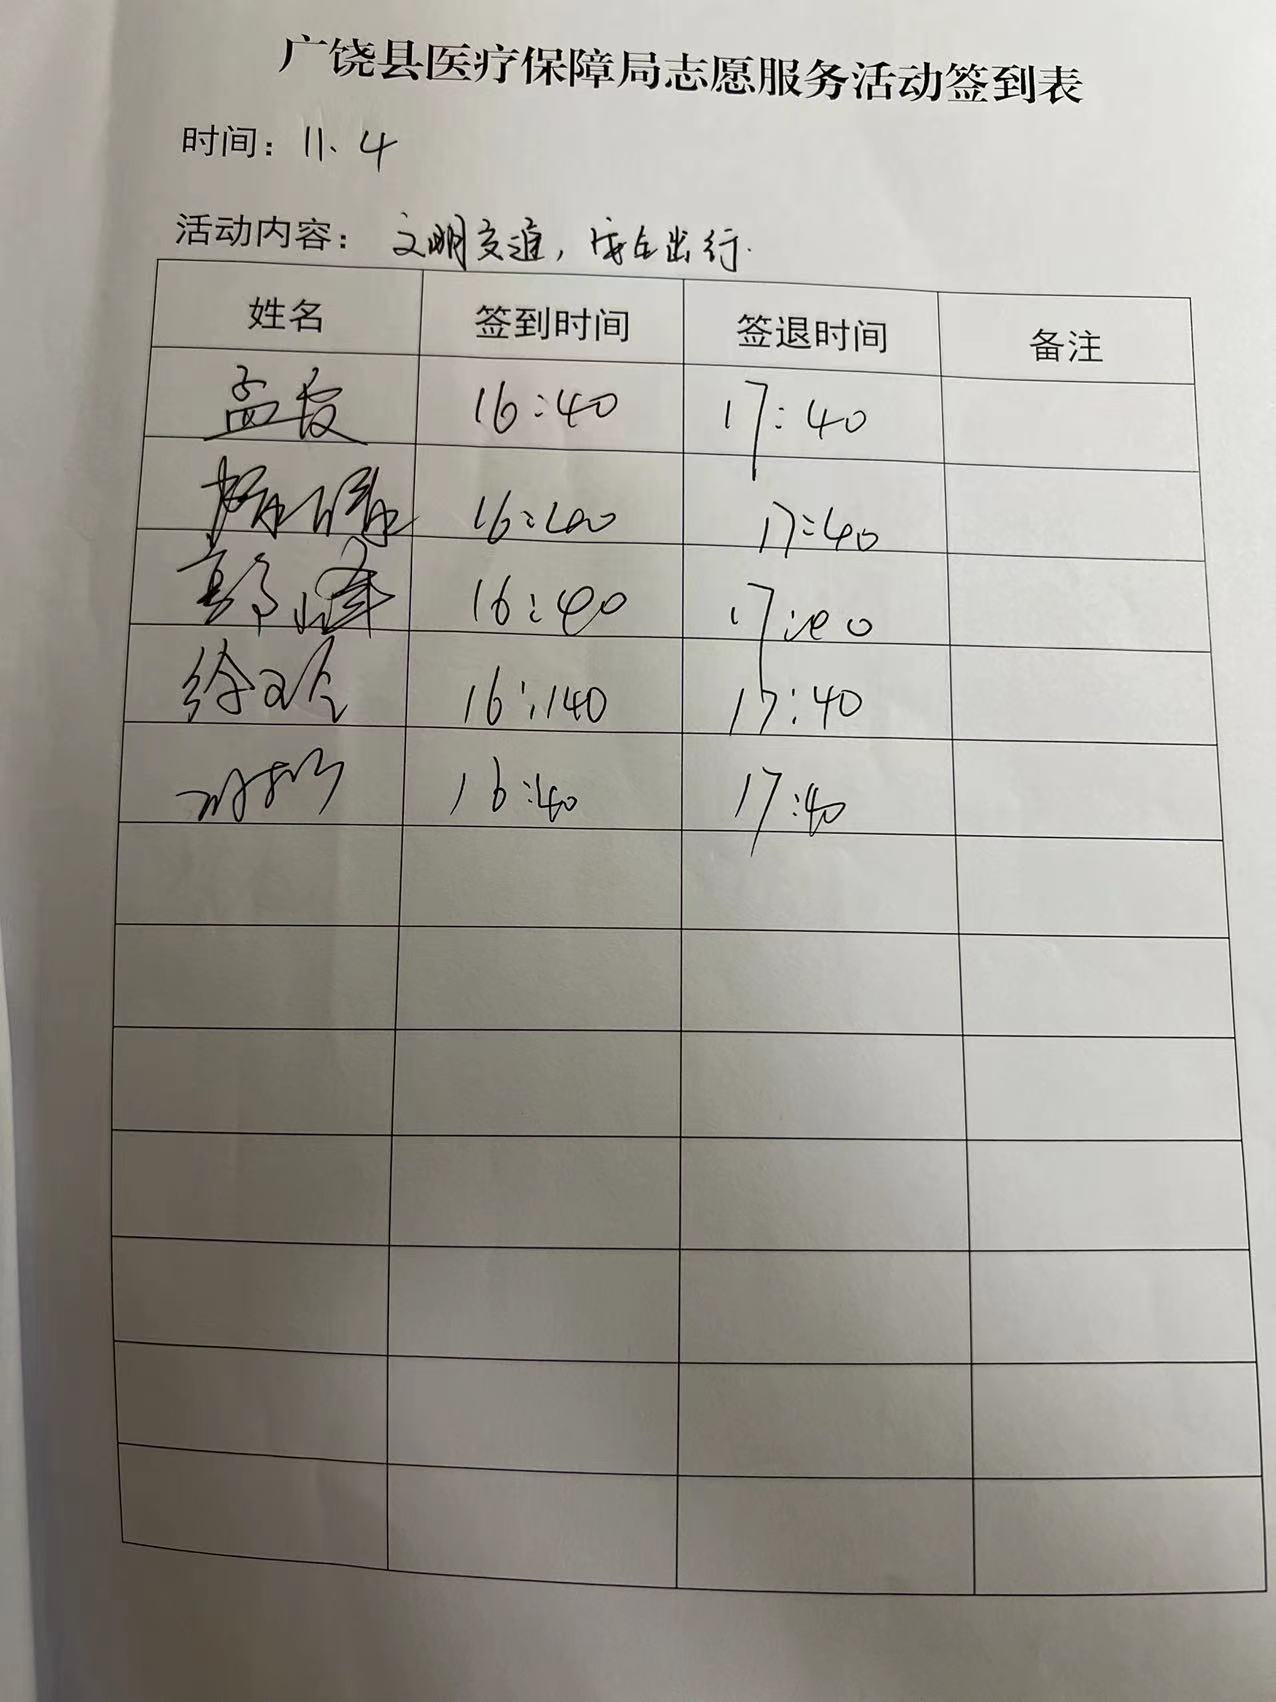 广饶县医疗保障局志愿服务活动签到表
时间：11.4
活动内容：文明交通，安全出行.
姓名 签到时间 签退时间 备注
孟 16:40 17:40
16:40 17:40
郭峰 16:40 17:40
徐 16:40 17:40
16:40 17:40